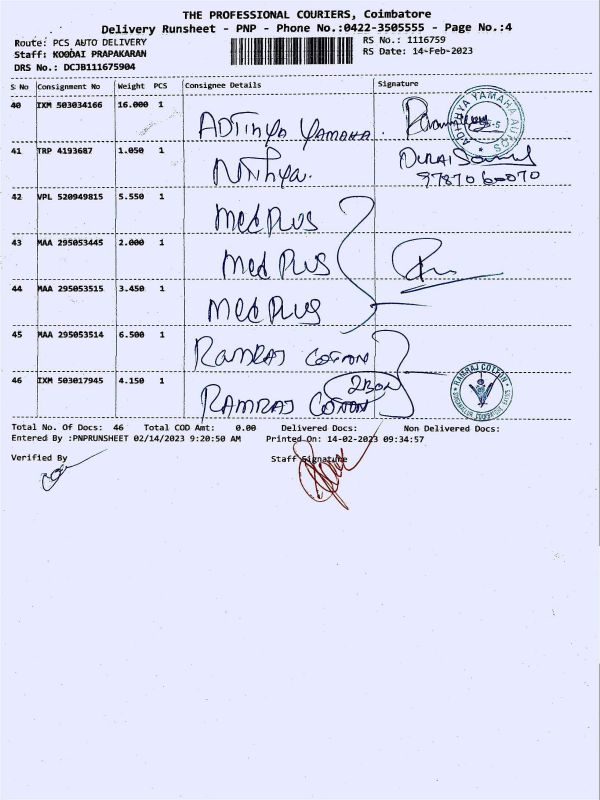 THE PROFESSIONAL COURIERS, Coimbatore
Delivery Runsheet - PNP - Phone No.:0422-3505555 - Page No.:4
Route: PCS AUTO DELIVERY RS No.: 1116759
Staff: KOODAI PRAPAKARAN RS Date: 14-Feb-2023
DRS No.: DCJB111675904
S No Consignment No Weight PCS Consignee Details Signature
40 IXM 503034166 16.000 1 ADTIHYA YAMAHA
41 TRP 4193687 1.050 1 Nithya.
42 VPL 520949815 5.550 1 Med Plus
43 MAA 295053445 2.000 1 Med Plus
44 MAA 295053515 3.450 1 Med Plus
45 MAA 295053514 6.500 1 Ramraj Cotton
46 IXM 503017945 4.150 1 RAMRAJ Cotton
RAMRAJ COTTON
Total No. Of Docs: 46 Total COD Amt: 0.00 Delivered Docs: Non Delivered Docs:
Entered By :PNPRUNSHEET 02/14/2023 9:20:50 AM Printed On: 14-02-2023 09:34:57
Verified By Staff Signature